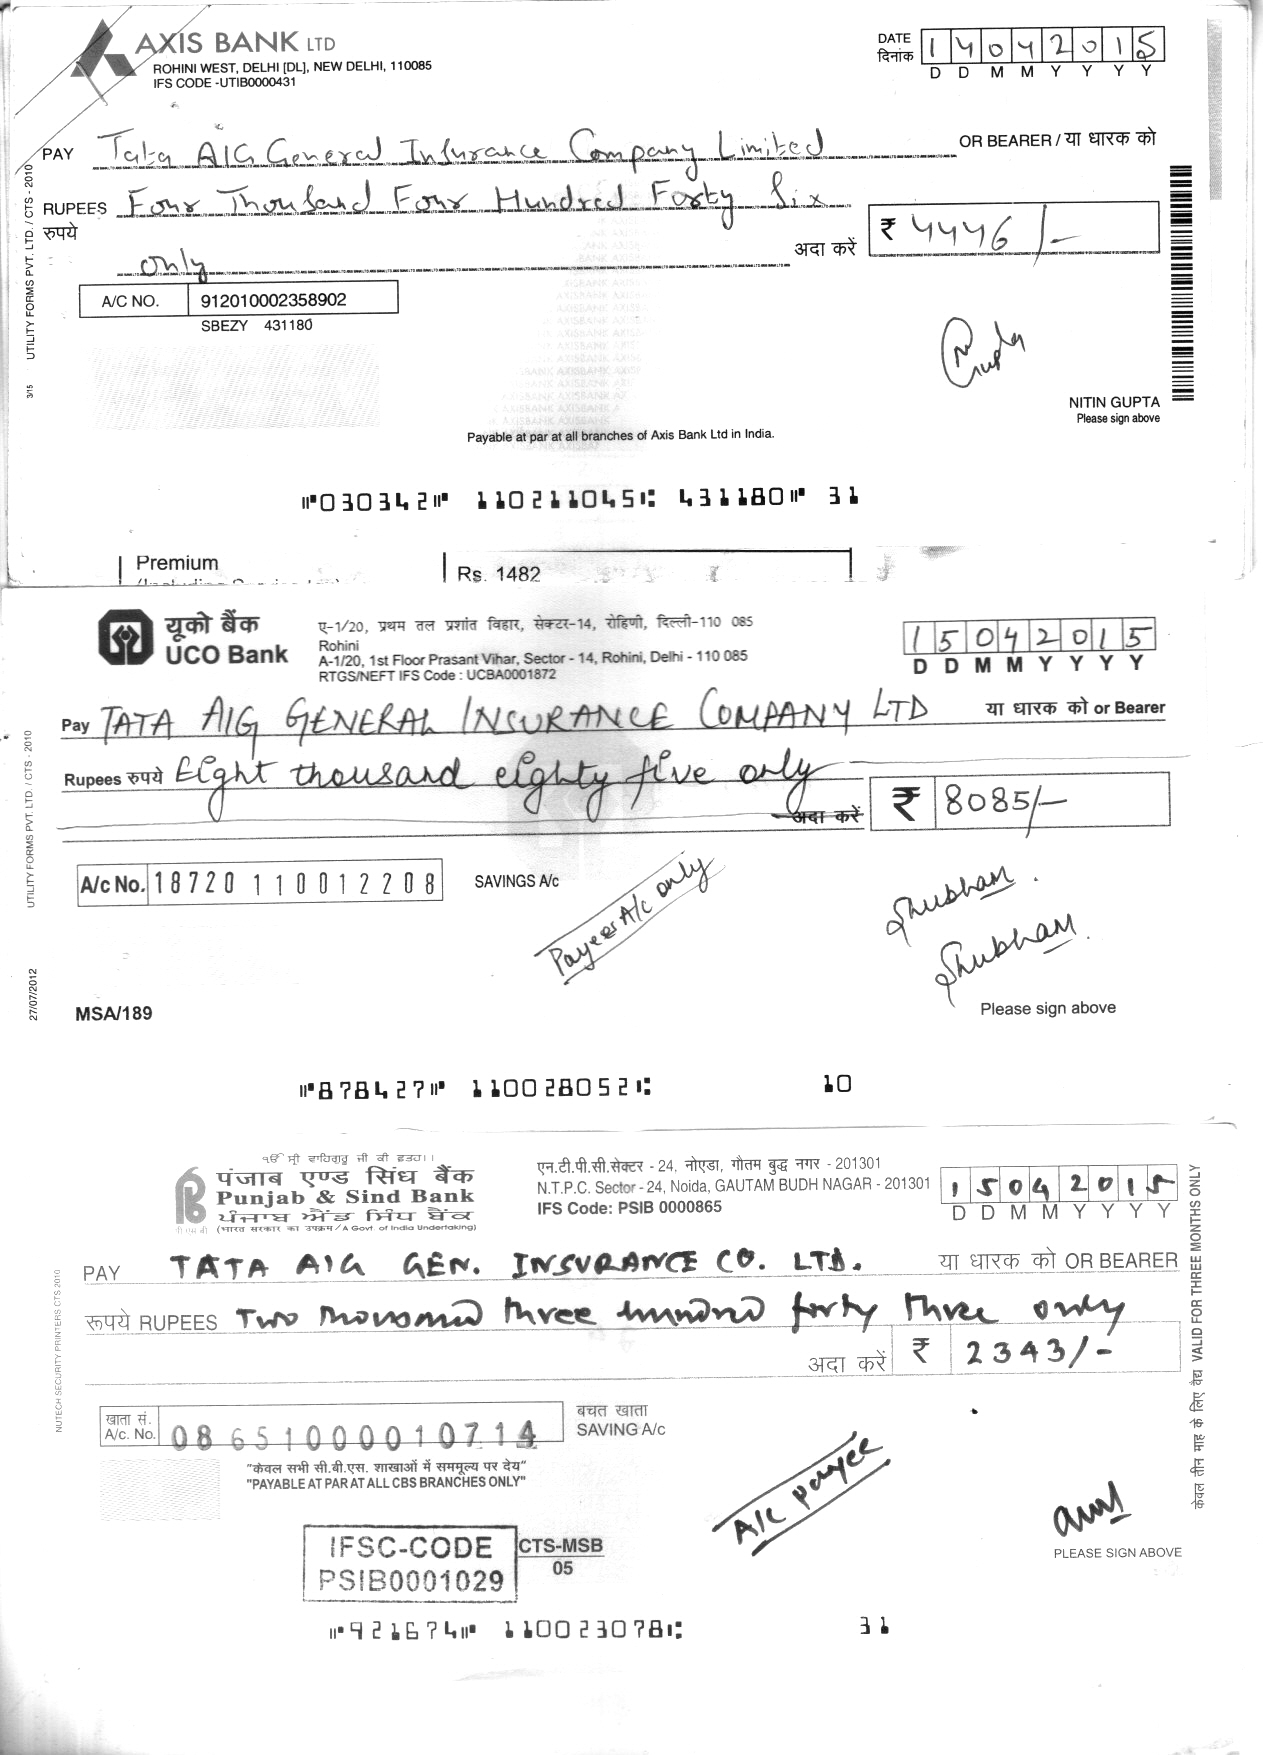 AXIS BANK LTD
ROHINI WEST, DELHI [DL], NEW DELHI, 110085
IFS CODE -UTIB0000431
DATE
दिनांक 14042015
D D M M Y Y Y Y
PAY Tata AIG General Insurance Company Limited OR BEARER / या धारक को
RUPEES Four Thousand Four Hundred Forty Six
रुपये
only अदा करें ₹ 4446/-
A/C NO. 912010002358902
SBEZY 431180
3/15 UTILITY FORMS PVT. LTD. / CTS - 2010
NITIN GUPTA
Please sign above
Payable at par at all branches of Axis Bank Ltd in India.
⑈030342⑈ 110211045⑆ 431180⑈ 31
Premium
Rs. 1482
यूको बैंक
UCO Bank
ए-1/20, प्रथम तल प्रशांत विहार, सेक्टर-14, रोहिणी, दिल्ली-110 085
Rohini
A-1/20, 1st Floor Prasant Vihar, Sector - 14, Rohini, Delhi - 110 085
RTGS/NEFT IFS Code : UCBA0001872
15042015
D D M M Y Y Y Y
Pay TATA AIG GENERAL INSURANCE COMPANY LTD या धारक को or Bearer
Rupees रुपये Eight thousand eighty five only
अदा करें ₹ 8085/-
A/c No. 18720110012208
SAVINGS A/c
Payees A/c only
Shubham
Shubham
27/07/2012 UTILITY FORMS PVT. LTD / CTS - 2010
MSA/189
Please sign above
⑈878427⑈ 110028052⑆ 10
ੴ ਸ੍ਰੀ ਵਾਹਿਗੁਰੂ ਜੀ ਕੀ ਫਤਹ।।
पंजाब एण्ड सिंध बैंक
Punjab & Sind Bank
ਪੰਜਾਬ ਐਂਡ ਸਿੰਧ ਬੈਂਕ
(भारत सरकार का उपक्रम / A Govt. of India Undertaking)
एन.टी.पी.सी.सेक्टर - 24, नोएडा, गौतम बुद्ध नगर - 201301
N.T.P.C. Sector - 24, Noida, GAUTAM BUDH NAGAR - 201301
IFS Code: PSIB 0000865
15042015
D D M M Y Y Y Y
PAY TATA AIG GEN. INSURANCE CO. LTD. या धारक को OR BEARER
रूपये RUPEES Two thousand three hundred forty three only
अदा करें ₹ 2343/-
खाता सं.
A/c. No. 08651000010714
बचत खाता
SAVING A/c
"केवल सभी सी.बी.एस. शाखाओं में सममूल्य पर देय"
"PAYABLE AT PAR AT ALL CBS BRANCHES ONLY"
A/c payee
IFSC-CODE
PSIB0001029
CTS-MSB
05
PLEASE SIGN ABOVE
NUTECH SECURITY PRINTERS CTS 2010
केवल तीन माह के लिए वैद्य VALID FOR THREE MONTHS ONLY
⑈921674⑈ 110023078⑆ 31